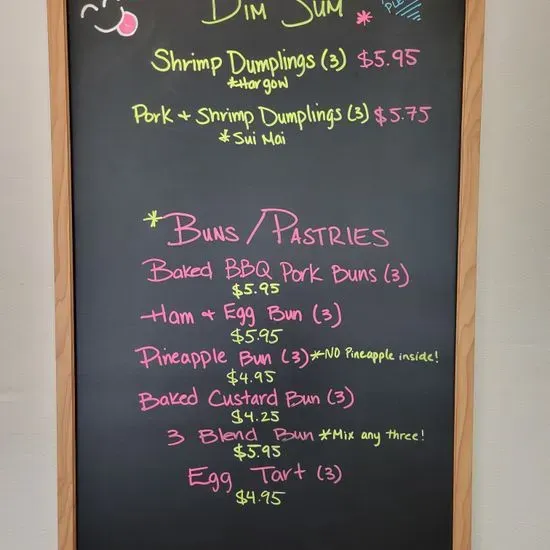 DIM SUM *
Shrimp Dumplings (3) $5.95
*Har gow
Pork + Shrimp Dumplings (3) $5.75
* Sui Mai
*BUNS / PASTRIES
Baked BBQ Pork Buns (3)
$5.95
Ham + Egg Bun (3)
$5.95
Pineapple Bun (3) *NO Pineapple inside!
$4.95
Baked Custard Bun (3)
$4.25
3 Blend Bun *Mix any three!
$5.95
Egg Tart (3)
$4.95